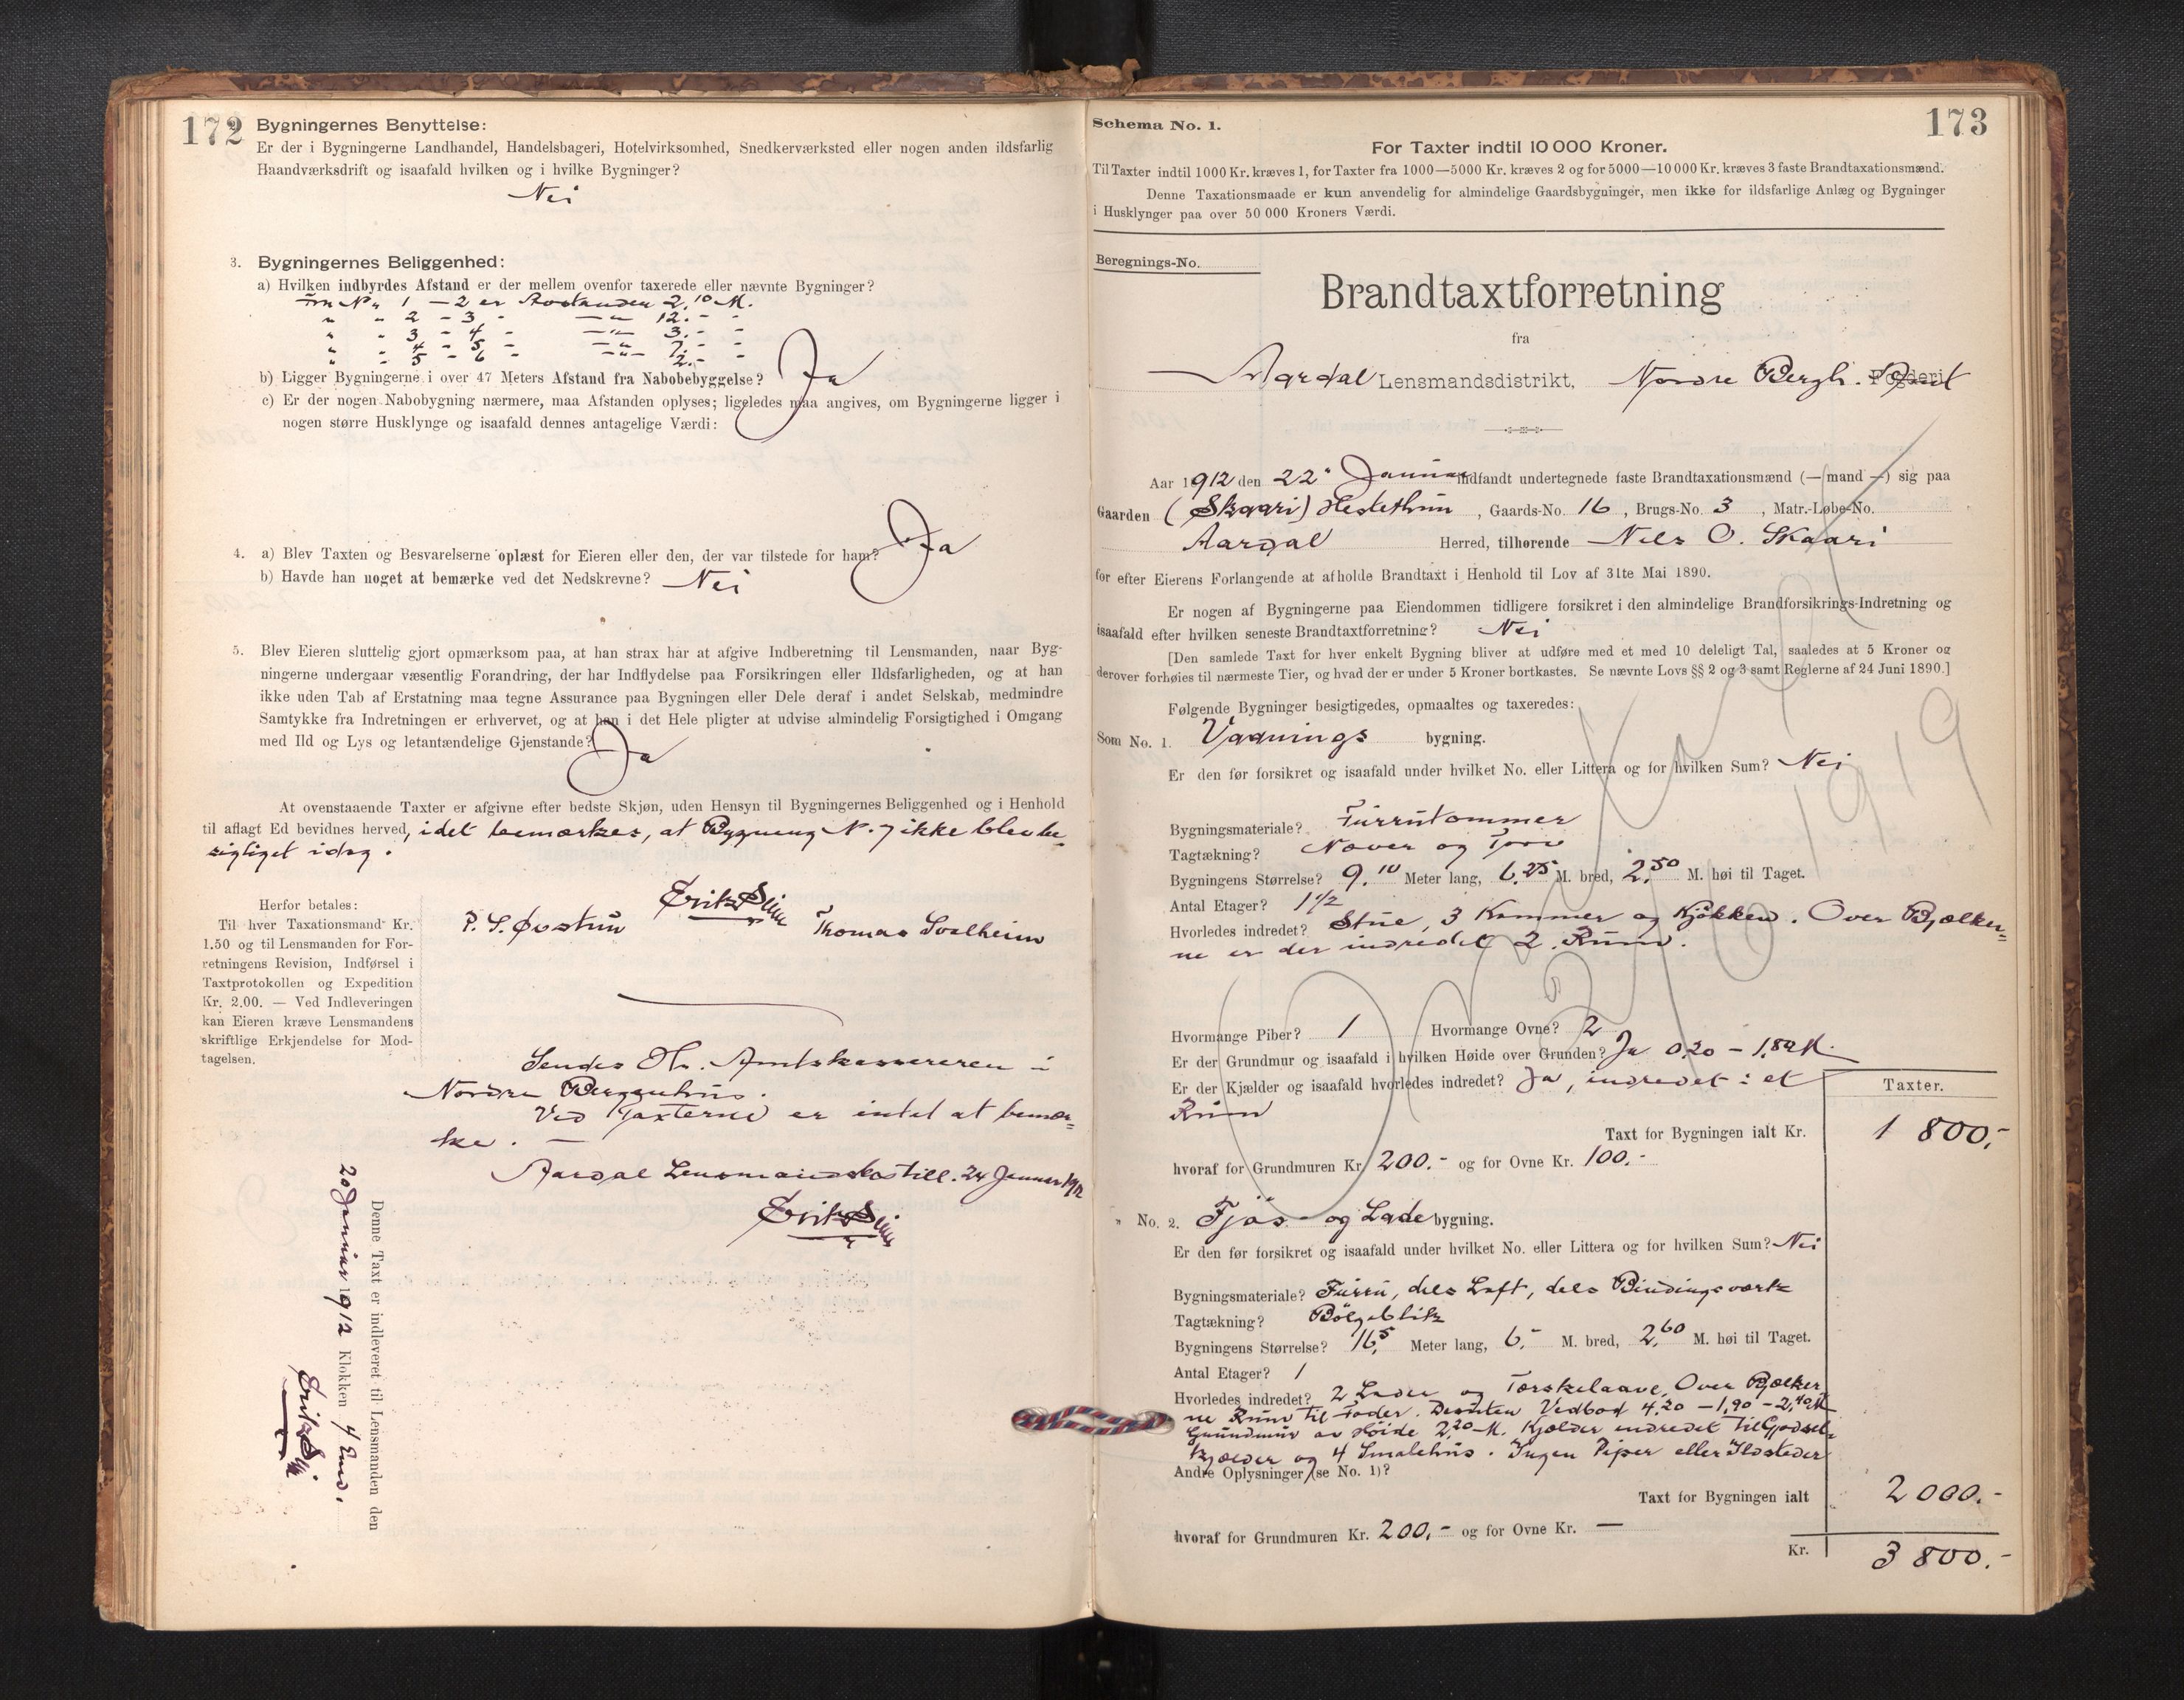 172
Bygningernes Benyttelse:
Er der i Bygningerne Landhandel, Handelsbageri, Hotelvirksomhed, Snedkerværksted eller nogen anden ildsfarlig
Haandværksdrift og isaafald hvilken og i hvilke Bygninger?
Nei
3. Bygningernes Beliggenhed:
a) Hvilken indbyrdes Afstand er der mellem ovenfor taxerede eller nævnte Bygninger?
Fra No 1 - 2 er Avstanden 2,10 M.
" " 2 - 3 - —"— 12.- -
" " 3 - 4 - —"— 3.- -
" " 4 - 5 - —"— 7.- -
" " 5 - 6 - —"— 2.- -
b) Ligger Bygningerne i over 47 Meters Afstand fra Nabobebyggelse? Ja
c) Er der nogen Nabobygning nærmere, maa Afstanden oplyses; ligeledes maa angives, om Bygningerne ligger i
nogen større Husklynge og isaafald dennes antagelige Værdi:
4. a) Blev Taxten og Besvarelserne oplæst for Eieren eller den, der var tilstede for ham? Ja
b) Havde han noget at bemærke ved det Nedskrevne? Nei
5. Blev Eieren sluttelig gjort opmærksom paa, at han strax har at afgive Indberetning til Lensmanden, naar Byg-
ningerne undergaar væsentlig Forandring, der har Indflydelse paa Forsikringen eller Ildsfarligheden, og at han
ikke uden Tab af Erstatning maa tegne Assurance paa Bygningen eller Dele deraf i andet Selskab, medmindre
Samtykke fra Indretningen er erhvervet, og at han i det Hele pligter at udvise almindelig Forsigtighed i Omgang
med Ild og Lys og letantændelige Gjenstande? Ja
At ovenstaaende Taxter er afgivne efter bedste Skjøn, uden Hensyn til Bygningernes Beliggenhed og i Henhold
til aflagt Ed bevidnes herved, idet bemærkes, at Bygning N. 7 ikke blev be-
sigtiget idag.
P. S. Øvstun Thomas Soelheim
Herfor betales:
Til hver Taxationsmand Kr.
1.50 og til Lensmanden for For-
retningens Revision, Indførsel i
Taxtprotokollen og Expedition
Kr. 2.00. — Ved Indleveringen
kan Eieren kræve Lensmandens
skriftlige Erkjendelse for Mod-
tagelsen.
Sendes Hr. Amtskassereren i
Nordre Bergenhus.
Ved Taxterne er intet at bemær-
ke. —
Aardal Lensmandsbestill. 24 Januar 1912
Denne Taxt er indleveret til Lensmanden den
20 Januar 1912 Klokken 4 Emd.
173
Schema No. 1.
For Taxter indtil 10 000 Kroner.
Til Taxter indtil 1000 Kr. kræves 1, for Taxter fra 1000—5000 Kr. kræves 2 og for 5000—10 000 Kr. kræves 3 faste Brandtaxationsmænd.
Denne Taxationsmaade er kun anvendelig for almindelige Gaardsbygninger, men ikke for ildsfarlige Anlæg og Bygninger
i Husklynger paa over 50 000 Kroners Værdi.
Beregnings-No.
Brandtaxtforretning
fra
Aardal Lensmandsdistrikt, Nordre Bergh. Fogderi Amt
Aar 1912 den 22' Januar indfandt undertegnede faste Brandtaxationsmænd (— mand —) sig paa
Gaarden (Skaari) Hestethun, Gaards-No. 16, Brugs-No. 3, Matr.-Løbe-No.
Aardal Herred, tilhørende Nels O. Skaari
for efter Eierens Forlangende at afholde Brandtaxt i Henhold til Lov af 31te Mai 1890.
Er nogen af Bygningerne paa Eiendommen tidligere forsikret i den almindelige Brandforsikrings-Indretning og
isaafald efter hvilken seneste Brandtaxtforretning? Nei
[Den samlede Taxt for hver enkelt Bygning bliver at udføre med et med 10 deleligt Tal, saaledes at 5 Kroner og
derover forhøies til nærmeste Tier, og hvad der er under 5 Kroner bortkastes. Se nævnte Lovs §§ 2 og 3 samt Reglerne af 24 Juni 1890.]
Følgende Bygninger besigtigedes, opmaaltes og taxeredes:
Som No. 1. Vaanings bygning.
Er den før forsikret og isaafald under hvilket No. eller Littera og for hvilken Sum? Nei
1919
Bygningsmateriale? Furrutømmer
Tagtækning? Næver og Torv
Bygningens Størrelse? 9.10 Meter lang, 6,25 M. bred, 2,50 M. høi til Taget.
Antal Etager? 1 1/2
Hvorledes indredet? Stue, 3 Kammer og Kjøkken. Over Bjælker-
ne er der indredet 2 Rum.
Hvormange Piber? 1 Hvormange Ovne? 2
Er der Grundmur og isaafald i hvilken Høide over Grunden? Ja 0,20 - 1,80 M.
Er der Kjælder og isaafald hvorledes indredet? Ja, indredet i et
Rum
Taxter.
Taxt for Bygningen ialt Kr. 1 800,-
hvoraf for Grundmuren Kr. 200.- og for Ovne Kr. 100.-
" No. 2. Fjøs- og Lade bygning.
Er den før forsikret og isaafald under hvilket No. eller Littera og for hvilken Sum? Nei
Bygningsmateriale? Furru, dels Laft, dels Bindingsværk
Tagtækning? Bölgeblik
Bygningens Størrelse? 16,5 Meter lang, 6,- M. bred, 2,60 M. høi til Taget.
Antal Etager? 1
Hvorledes indredet? 2 Lader og Tørskelaave. Over Bjælker
ne Rum til Foder. Desuten Vedbod 4,20 - 1,90 - 2,40 M
Grundmur av Høide 2,20 M. Kjælder indredet til Gjødsel-
kjælder og 4 Smalehus. Ingen Piper eller Ildsteder
Andre Oplysninger (se No. 1)?
Taxt for Bygningen ialt 2 000.-
hvoraf for Grundmuren Kr. 200,- og for Ovne Kr. —
Kr. 3 800.-